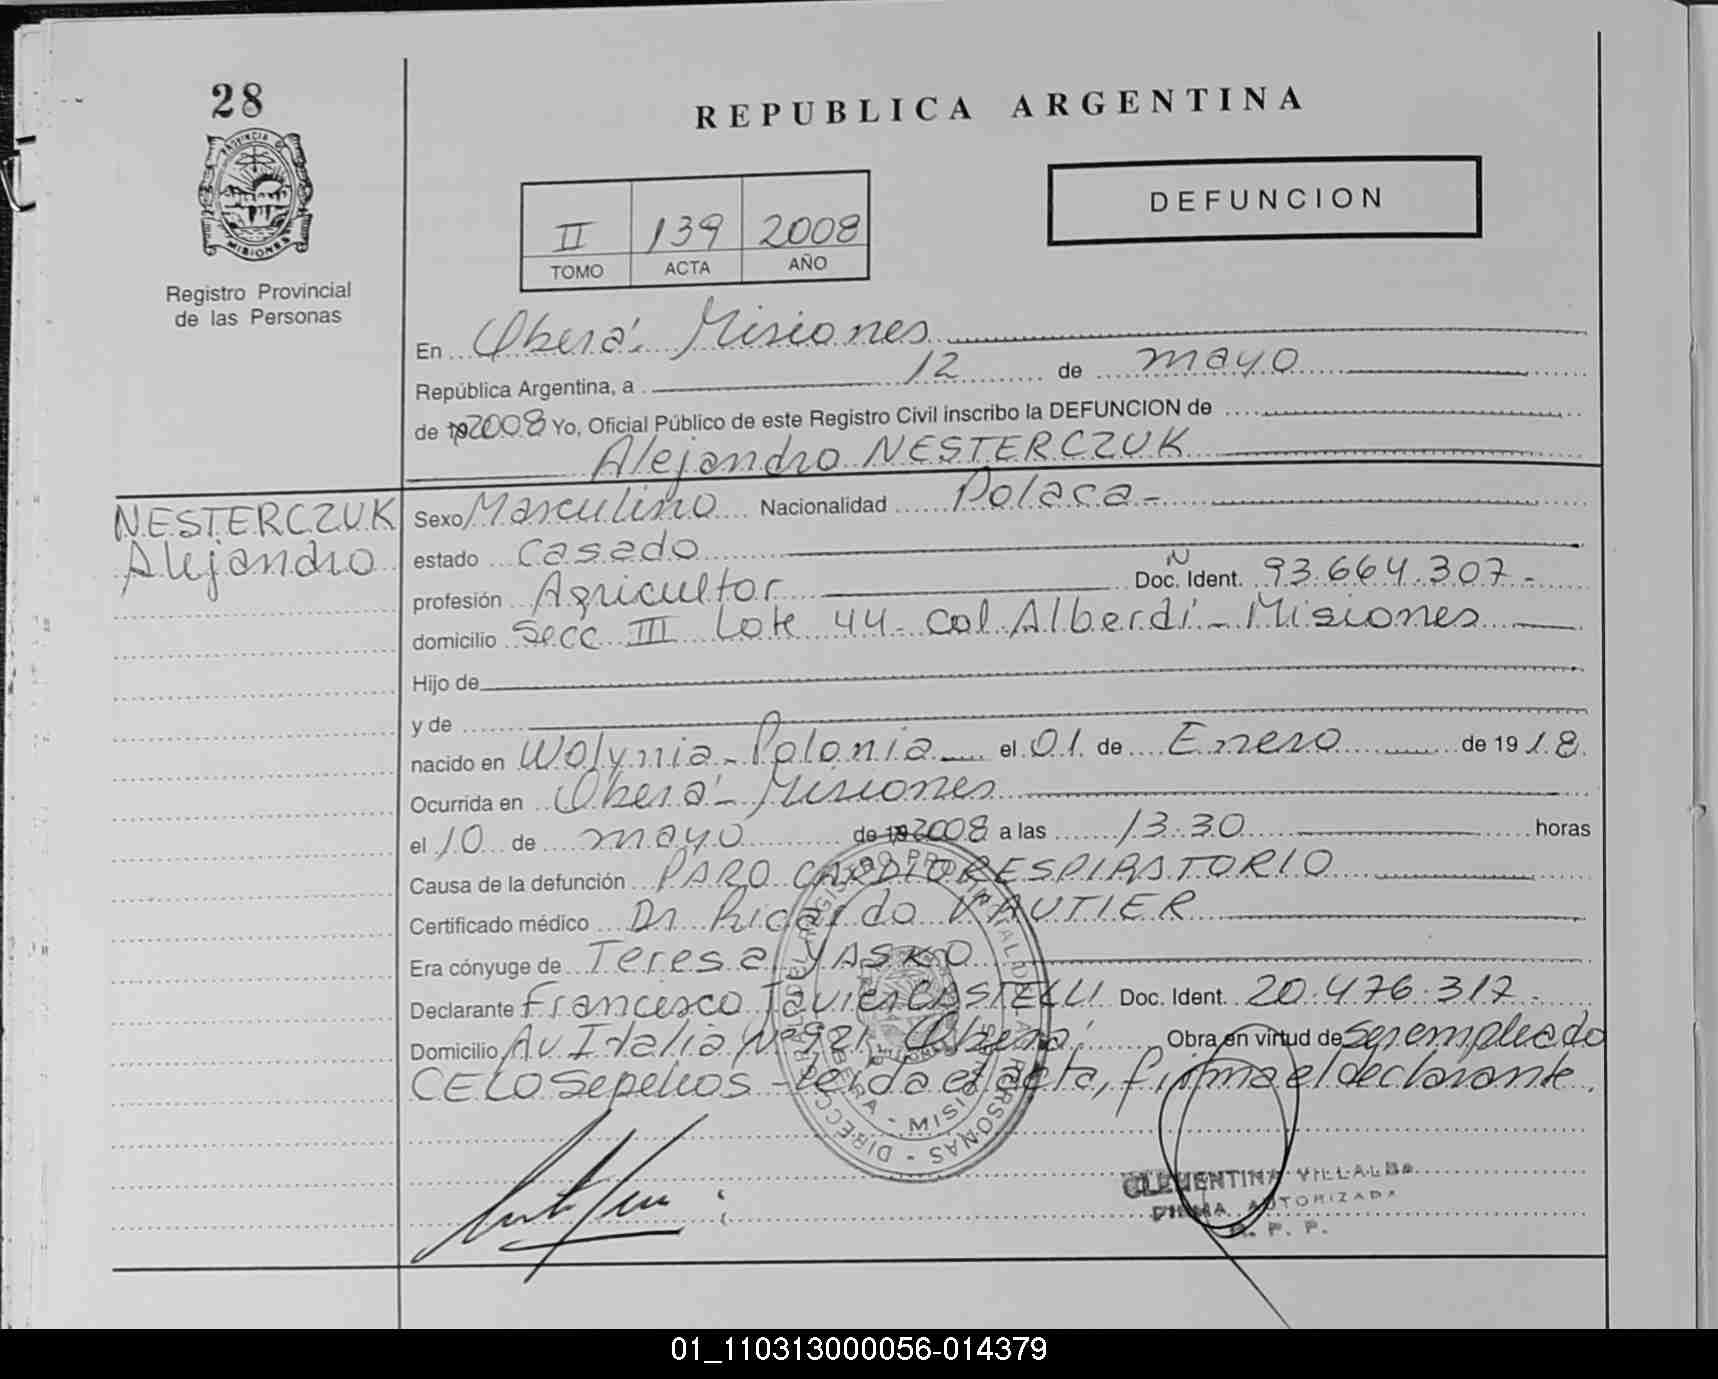 28
REPUBLICA ARGENTINA
PROVINCIA DE
MISIONES
Registro Provincial
de las Personas
DEFUNCION
II 139 2008
TOMO ACTA AÑO
En Oberá. Misiones
República Argentina, a 12 de mayo
de 2008 Yo, Oficial Público de este Registro Civil inscribo la DEFUNCION de
Alejandro NESTERCZUK
NESTERCZUK
Alejandro
Sexo Masculino Nacionalidad Polaca-
estado casado
profesión Agricultor Doc. Ident. N 93.664.307-
domicilio Secc III Lote 44- Col Alberdi- Misiones
Hijo de
y de
nacido en Wolynia- Polonia el 01 de Enero de 1918
Ocurrida en Oberá- Misiones
el 10 de mayo de 2008 a las 13.30 horas
Causa de la defunción PARO CARDIORESPIRATORIO
Certificado médico Dr Ricardo VAUTIER
Era cónyuge de Teresa YASKO
Declarante Francisco Javier CASTELLI Doc. Ident. 20.476.317-
Domicilio Av Italia Nº 921 Oberá. Obra en virtud de ser empleado
CELO Sepelios - leída el acta, firma el declarante.
MISIONES
CLEMENTINA VILLALBA
FIRMA AUTORIZADA
R. P. P.
01_110313000056-014379